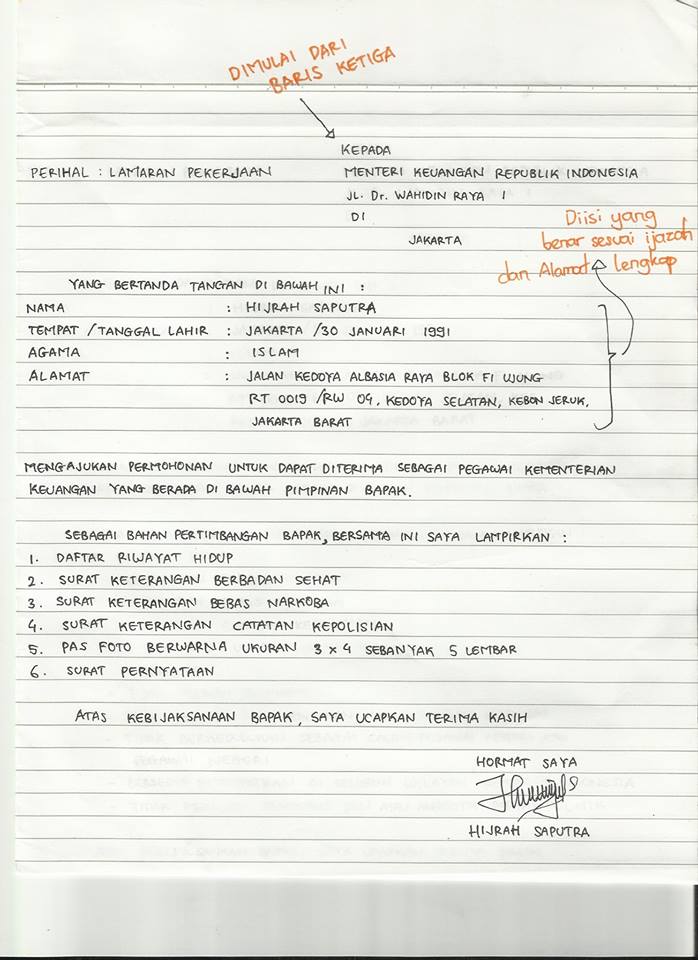 DIMULAI DARI
BARIS KETIGA
KEPADA
PERIHAL : LAMARAN PEKERJAAN MENTERI KEUANGAN REPUBLIK INDONESIA
JL. Dr. WAHIDIN RAYA 1
DI
JAKARTA
Diisi yang
benar sesuai ijazah
dan Alamat lengkap
YANG BERTANDA TANGAN DI BAWAH INI :
NAMA : HIJRAH SAPUTRA
TEMPAT / TANGGAL LAHIR : JAKARTA / 30 JANUARI 1991
AGAMA : ISLAM
ALAMAT : JALAN KEDOYA ALBASIA RAYA BLOK FI UJUNG
RT 0019 / RW 04, KEDOYA SELATAN, KEBON JERUK,
JAKARTA BARAT
MENGAJUKAN PERMOHONAN UNTUK DAPAT DITERIMA SEBAGAI PEGAWAI KEMENTERIAN
KEUANGAN YANG BERADA DI BAWAH PIMPINAN BAPAK.
SEBAGAI BAHAN PERTIMBANGAN BAPAK, BERSAMA INI SAYA LAMPIRKAN :
1. DAFTAR RIWAYAT HIDUP
2. SURAT KETERANGAN BERBADAN SEHAT
3. SURAT KETERANGAN BEBAS NARKOBA
4. SURAT KETERANGAN CATATAN KEPOLISIAN
5. PAS FOTO BERWARNA UKURAN 3 x 4 SEBANYAK 5 LEMBAR
6. SURAT PERNYATAAN
ATAS KEBIJAKSANAAN BAPAK, SAYA UCAPKAN TERIMA KASIH
HORMAT SAYA
HIJRAH SAPUTRA